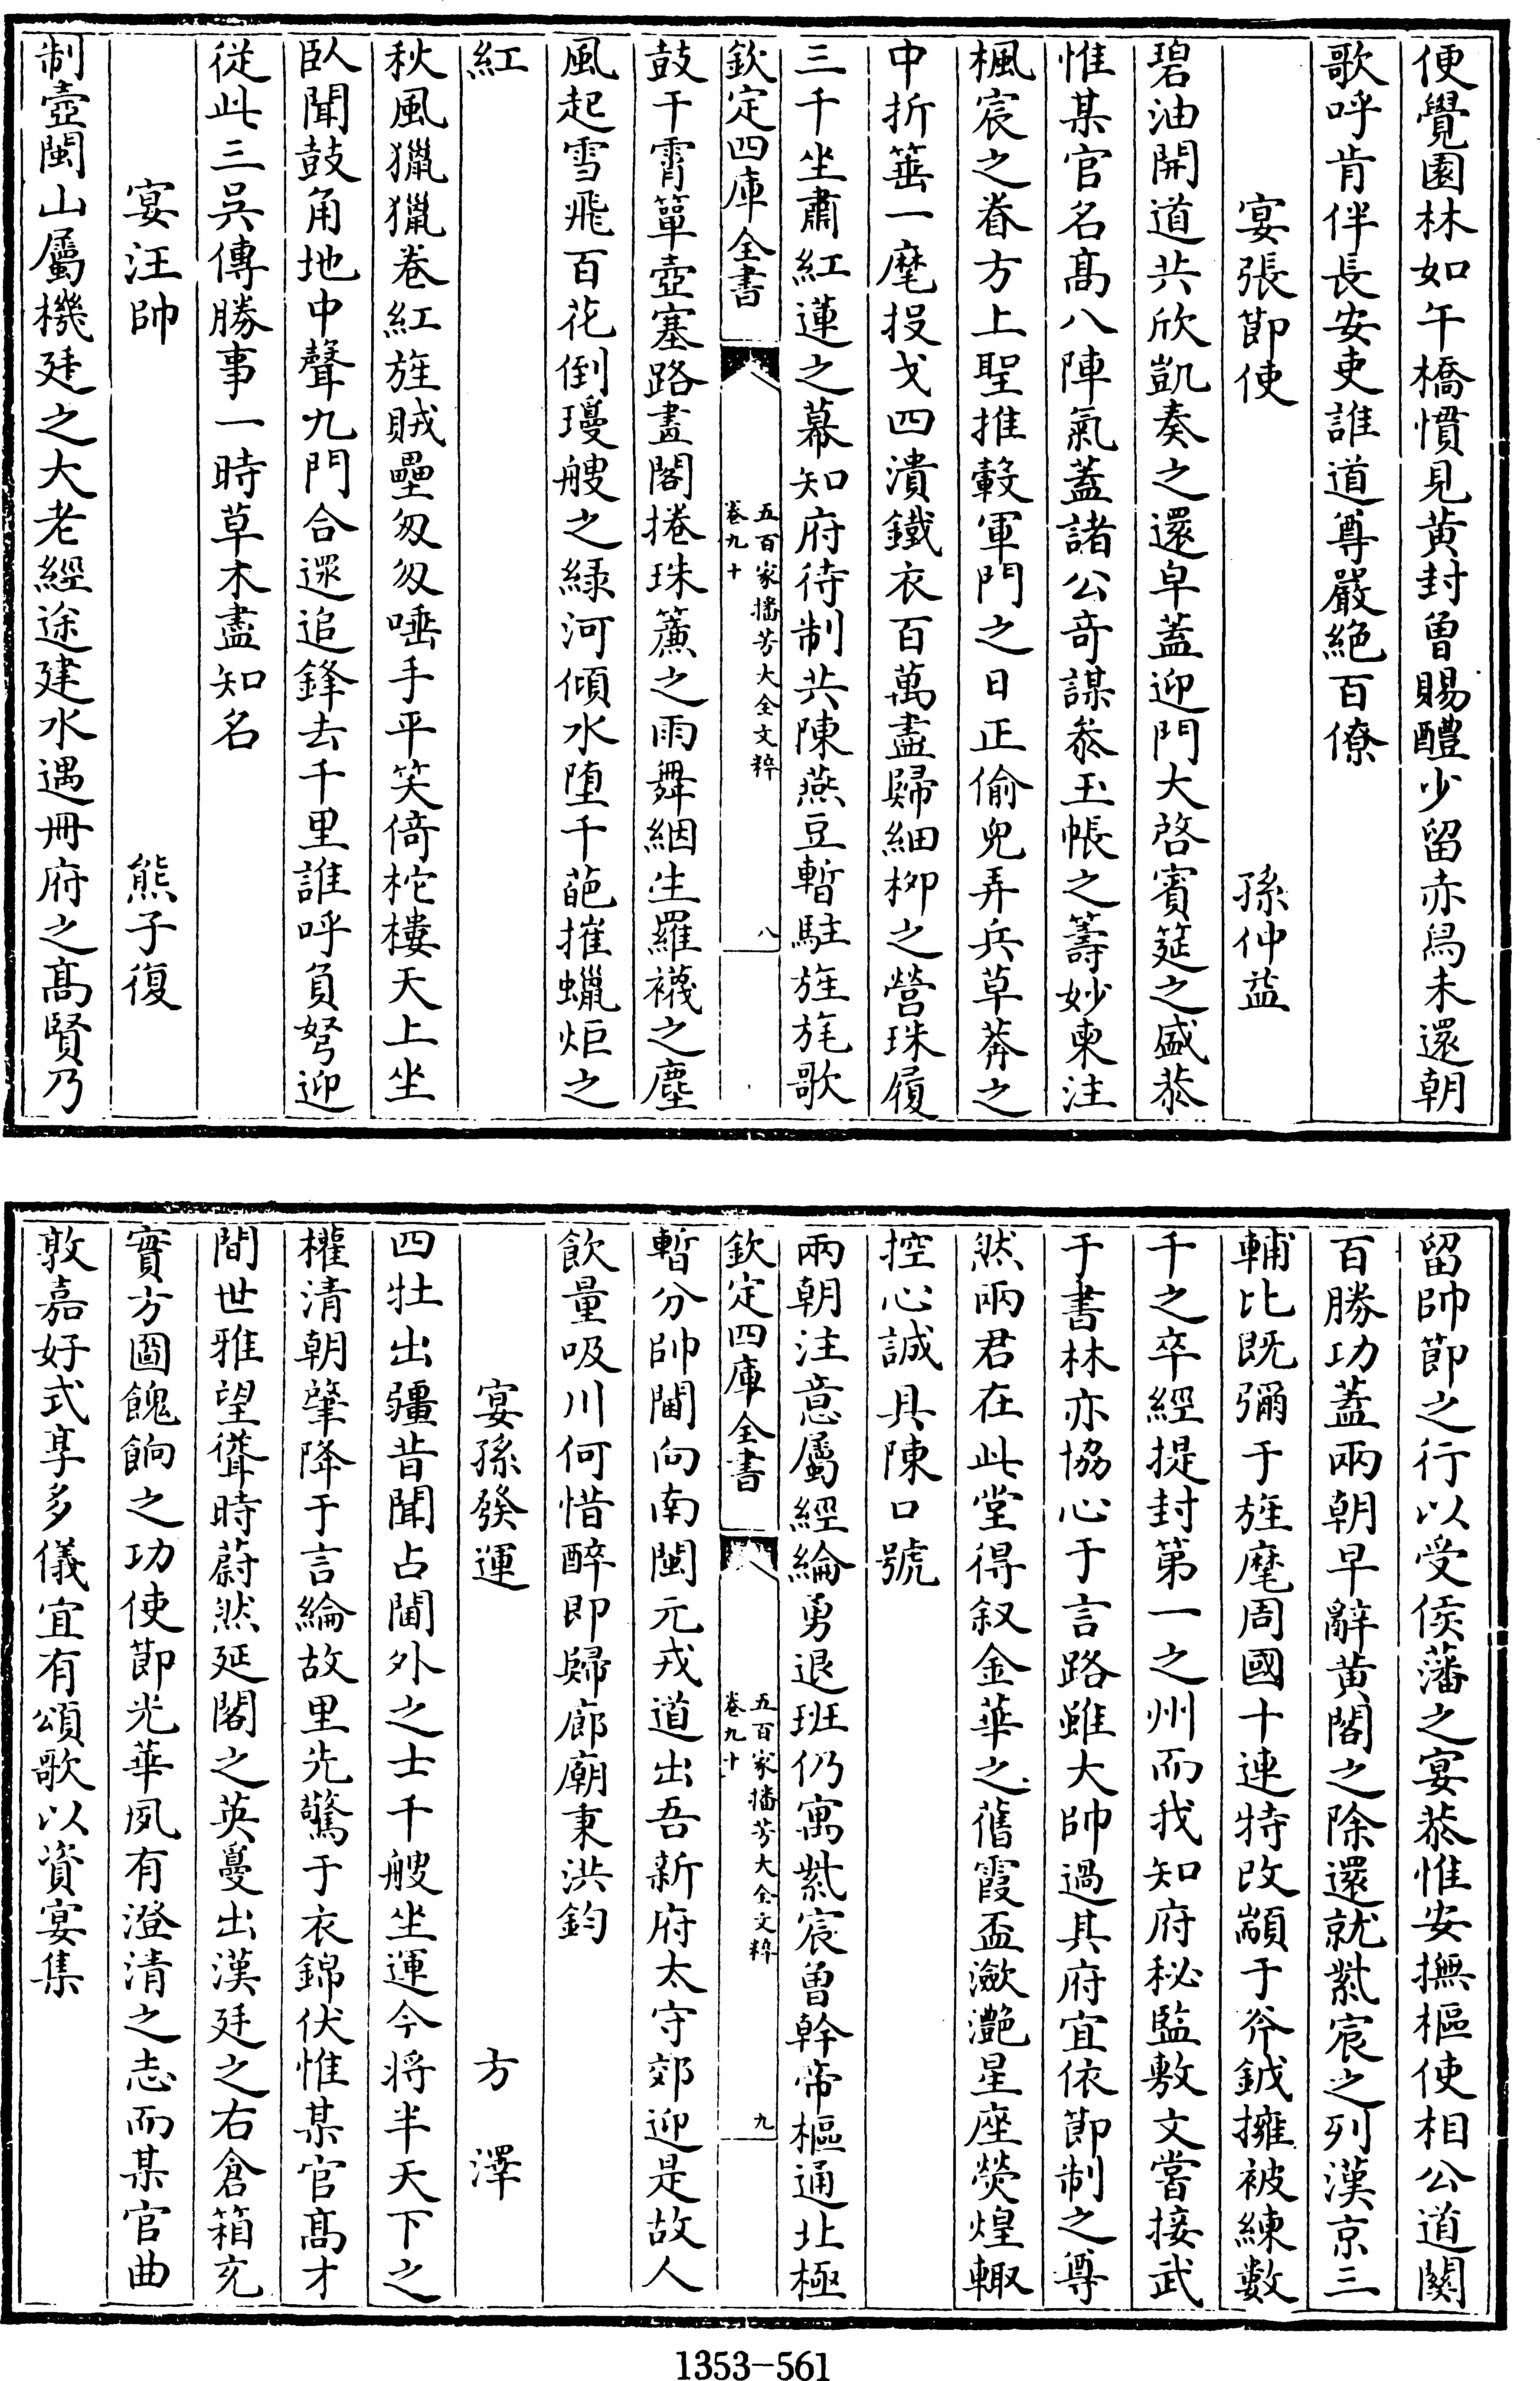 便覺園林如午橋慣見黄封曽賜醴少留赤舄未還朝
歌呼肯伴長安吏誰道尊嚴絶百僚
宴張節使　孫仲益
碧油開道共欣凱奏之還皁蓋迎門大啓賓筵之盛恭
惟某官名髙八陣氣蓋諸公竒謀叅玉帳之籌妙柬注
楓宸之眷方上聖推轂軍門之日正偷兒弄兵草莽之
中折箠一麾投戈四潰鐵衣百萬盡歸細栁之營珠履
三千坐肅紅蓮之幕知府待制共陳燕豆暫駐旌旄歌
欽定四庫全書　五百家播芳大全文粹　卷九十　八
鼓干霄簞壺塞路畫閣捲珠簾之雨舞絪生羅襪之塵
風起雪飛百花倒瓊艘之緑河傾水堕千葩摧蠟炬之
紅
秋風獵獵卷紅旌賊壘匆匆唾手平笑倚柁樓天上坐
臥聞鼓角地中聲九門合遝追鋒去千里誰呼負弩迎
從此三吳傳勝事一時草木盡知名
宴汪帥　熊子復
制壺閩山屬機廷之大老經途建水遇冊府之髙賢乃
留帥節之行以受侯藩之宴恭惟安撫樞使相公道闗
百勝功蓋兩朝早辭黄閣之除還就紫宸之列漢京三
輔比既彌于旌麾周國十連特改顓于斧鉞擁被練數
千之卒經提封第一之州而我知府秘監敷文嘗接武
于書林亦協心于言路雖大帥過其府宜依節制之尊
然兩君在此堂得叙金華之舊霞盃瀲灔星座熒煌輙
控心誠具陳口號
兩朝注意屬經綸勇退班仍寓紫宸曽幹帝樞通北極
欽定四庫全書　五百家播芳大全文粹　卷九十　九
暫分帥閫向南閩元戎道出吾新府太守郊迎是故人
飲量吸川何惜醉即歸廊廟秉洪鈞
宴孫發運　方澤
四牡出疆昔聞占閫外之士千艘坐運今将半天下之
權清朝肇降于言綸故里先驚于衣錦伏惟某官髙才
間世雅望聳時蔚然延閣之英戞出漢廷之右倉箱充
實方圖餽餉之功使節光華夙有澄清之志而某官曲
敦嘉好式享多儀宜有頌歌以資宴集
1353-561